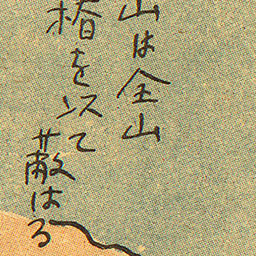 山は全山
椿を以て蔽はる